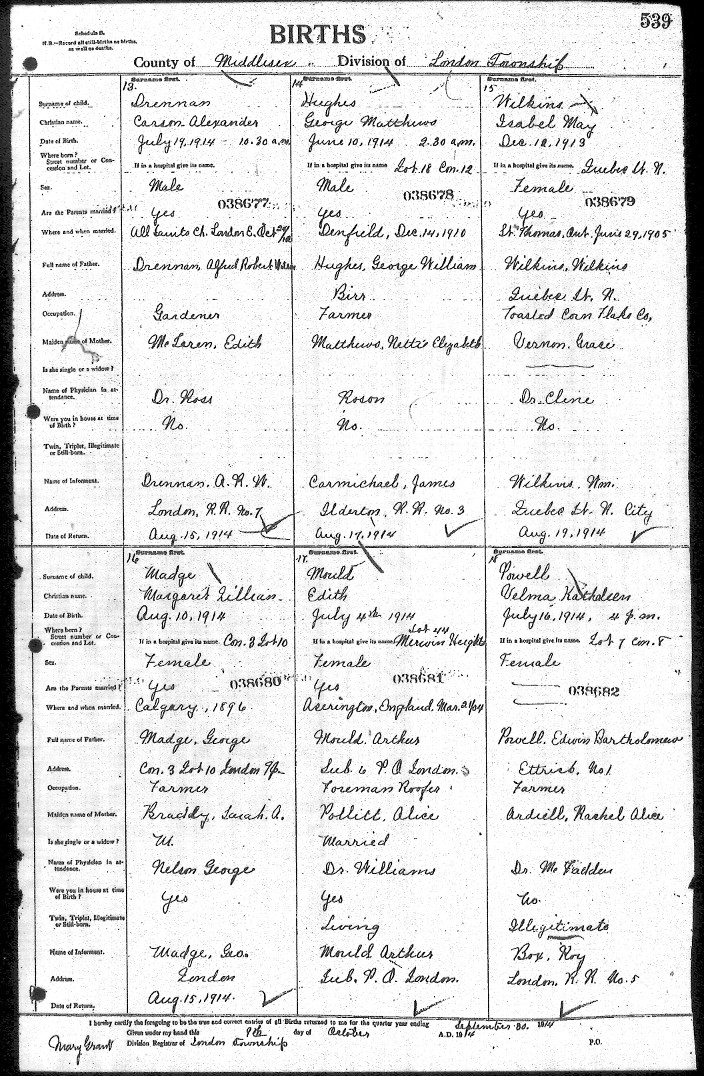 539
Schedule B.
N.B.—Record all still-births as births, as well as deaths.
BIRTHS
County of Middlesex Division of London Township
Surname first. Surname first. Surname first.
13. 14 15
Surname of child. Drennan Hughes Wilkins
Christian name. Carson Alexander George Matthews Isabel May
Date of Birth. July 19, 1914 - 10.30 a.m. June 10, 1914 2.30 a.m. Dec. 12, 1913
Where born? Street number or Concession and Lot. If in a hospital give its name. If in a hospital give its name Lot 18 Con. 12 If in a hospital give its name. Quebec St. N.
Sex. Male Male Female
038677 038678 038679
Are the Parents married? Yes Yes Yes
Where and when married. All Saints Ch. London E. Oct Denfield, Dec. 14, 1910 St. Thomas, Ont. June 29, 1905
Full name of Father. Drennan, Alfred Robert Hughes, George William Wilkins, Wilkins
Address. Birr Quebec St. N.
Occupation. Gardener Farmer Toasted Corn Flake Co.
Maiden name of Mother. McLaren, Edith Matthews, Nettie Elizabeth Vernon, Grace
Is she single or a widow?
Name of Physician in attendance. Dr. Ross Roson Dr. Cline
Were you in house at time of Birth? No. No. No.
Twin, Triplet, Illegitimate or Still-born.
Name of Informant. Drennan, A. R. W. Carmichael, James Wilkins, Wm.
Address. London, R.R. No. 7 Ilderton, R.R. No. 3 Quebec St. N. City
Date of Return. Aug. 15, 1914 Aug. 17, 1914 Aug. 19, 1914
Surname first. Surname first. Surname first.
16 17. 18
Surname of child. Madge Mould Powell
Christian name. Margaret Lillian Edith Velma Kathleen
Date of Birth. Aug. 10, 1914 July 4th 1914 July 16, 1914, 4 p.m.
Where born? Street number or Concession and Lot. If in a hospital give its name. Con. 3 Lot 10 If in a hospital give its name Lot 44 Merwin Heights If in a hospital give its name. Lot 7 Con. 8
Sex. Female Female Female
038680 038681 038682
Are the Parents married? Yes Yes
Where and when married. Calgary, 1896 Accrington, England, Mar. 21/04
Full name of Father. Madge, George Mould Arthur Powell, Edwin Bartholomew
Address. Con. 3 Lot 10 London Tp. Sub. 6 P.O. London. Ettrick, No. 1
Occupation. Farmer Foreman Roofer Farmer
Maiden name of Mother. Braddy, Sarah A. Pollitt, Alice Ardiell, Rachel Alice
Is she single or a widow? M. Married
Name of Physician in attendance. Nelson George Dr. Williams Dr. McFadden
Were you in house at time of Birth? Yes Yes No.
Twin, Triplet, Illegitimate or Still-born. Living Illegitimate
Name of Informant. Madge, Geo. Mould Arthur Box, Roy
Address. London Sub. P.O. London. London, R.R. No. 5
Date of Return. Aug. 15, 1914.
I hereby certify the foregoing to be the true and correct entries of all Births returned to me for the quarter year ending September 30. 1914
Given under my hand this 9th day of October A.D. 1914
Mary Grant Division Registrar of London Township P.O.